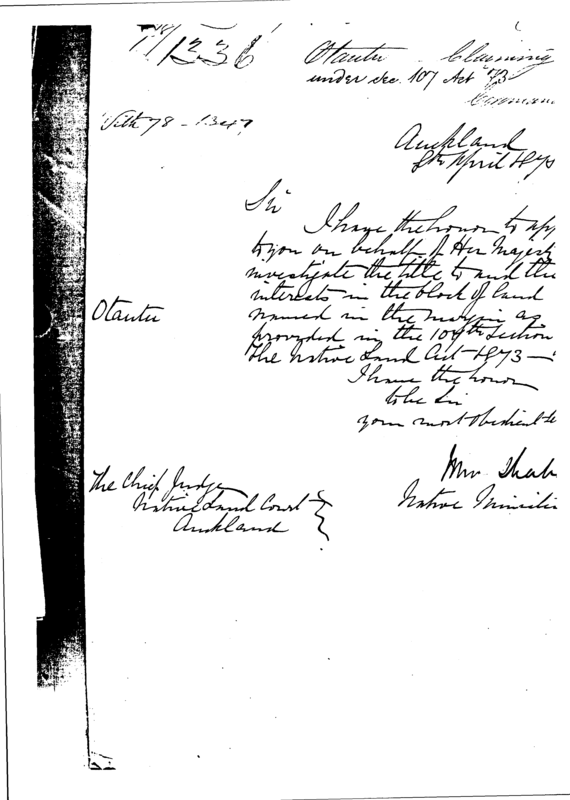 1236
Otautu Claiming
under Sec. 107 Act 73
With 78-1347
Auckland
8th April 187
Sir
I have the honor to app
to you on behalf of Her Majesty
investigate the title to and the
interests in the block of land
Otautu
named in the margin as
provided in the 107th Section
the Native Land Act 1873 —
I have the honor
to be Sir
your most obedient
Native Minister
The Chief Judge
Native Land Court
Auckland